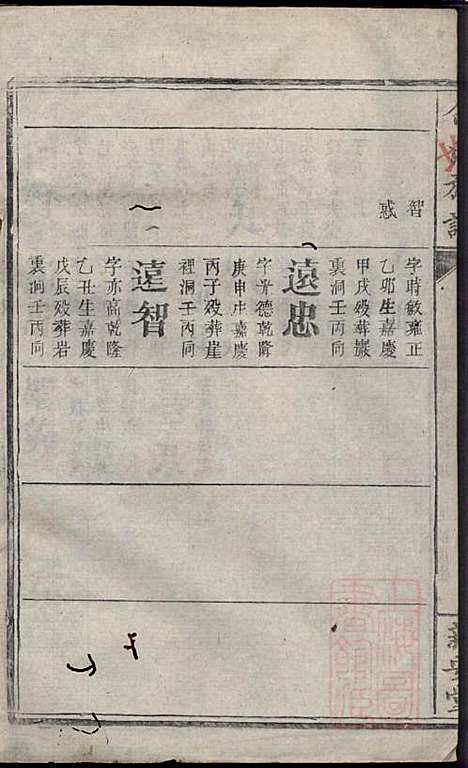 族譜
智
惑
字時敏雍正
乙卯生嘉慶
甲戌殁葬巖
裏洞壬丙向
遠忠
字光德乾隆
庚申生嘉慶
丙子殁葬崖
裡洞壬丙向
遠智
字亦高乾隆
乙丑生嘉慶
戊辰殁葬岩
裏洞壬丙向
堂